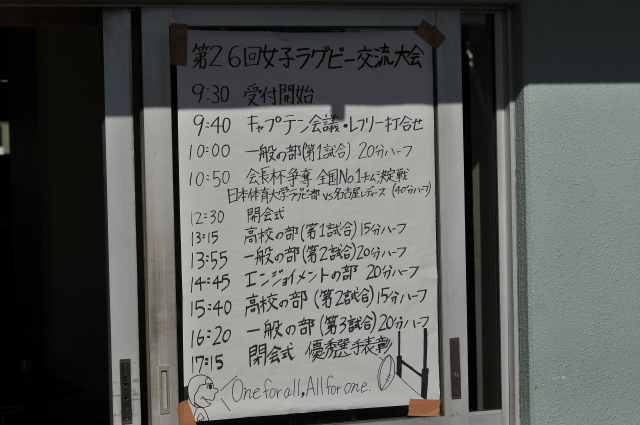 第26回女子ラグビー交流大会
9:30 受付開始
9:40 キャプテン会議・レフリー打合せ
10:00 一般の部(第1試合) 20分ハーフ
10:50 会長杯争奪 全国No1チーム決定戦
日本体育大学ラグビー部 vs 名古屋レディース (40分ハーフ)
12:30 開会式
13:15 高校の部(第1試合) 15分ハーフ
13:55 一般の部(第2試合) 20分ハーフ
14:45 エンジョイメントの部 20分ハーフ
15:40 高校の部(第2試合) 15分ハーフ
16:20 一般の部(第3試合) 20分ハーフ
17:15 閉会式 優秀選手表彰
One for all, All for one.